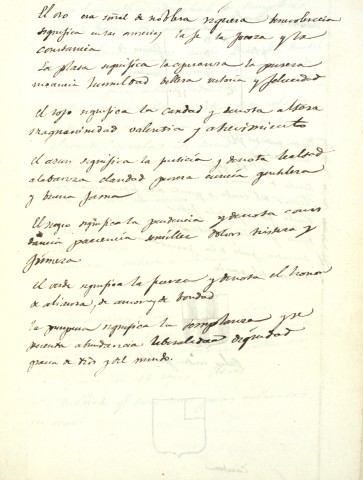 El oro era señal de nobleza riqueza benevolencia
significa en las armerias la fe la fuerza y la
constancia
La plata significa la esperanza la pureza
inocencia humildad belleza victoria y felicidad
El rojo significa la caridad y denota alteza
magnanimidad valentia y atrevimiento
El azur significa la justicia y denota lealtad
alabanza claridad pureza ciencia gentileza
y buena fama
El negro significa la prudencia y denota cons
tancia paciencia dolor tristeza y
firmeza
El verde significa la fuerza y denota el honor
de de amor y de bondad
la purpura significa la templanza y re
presenta abundancia liberalidad dignidad
gracia de Dios y del mundo.